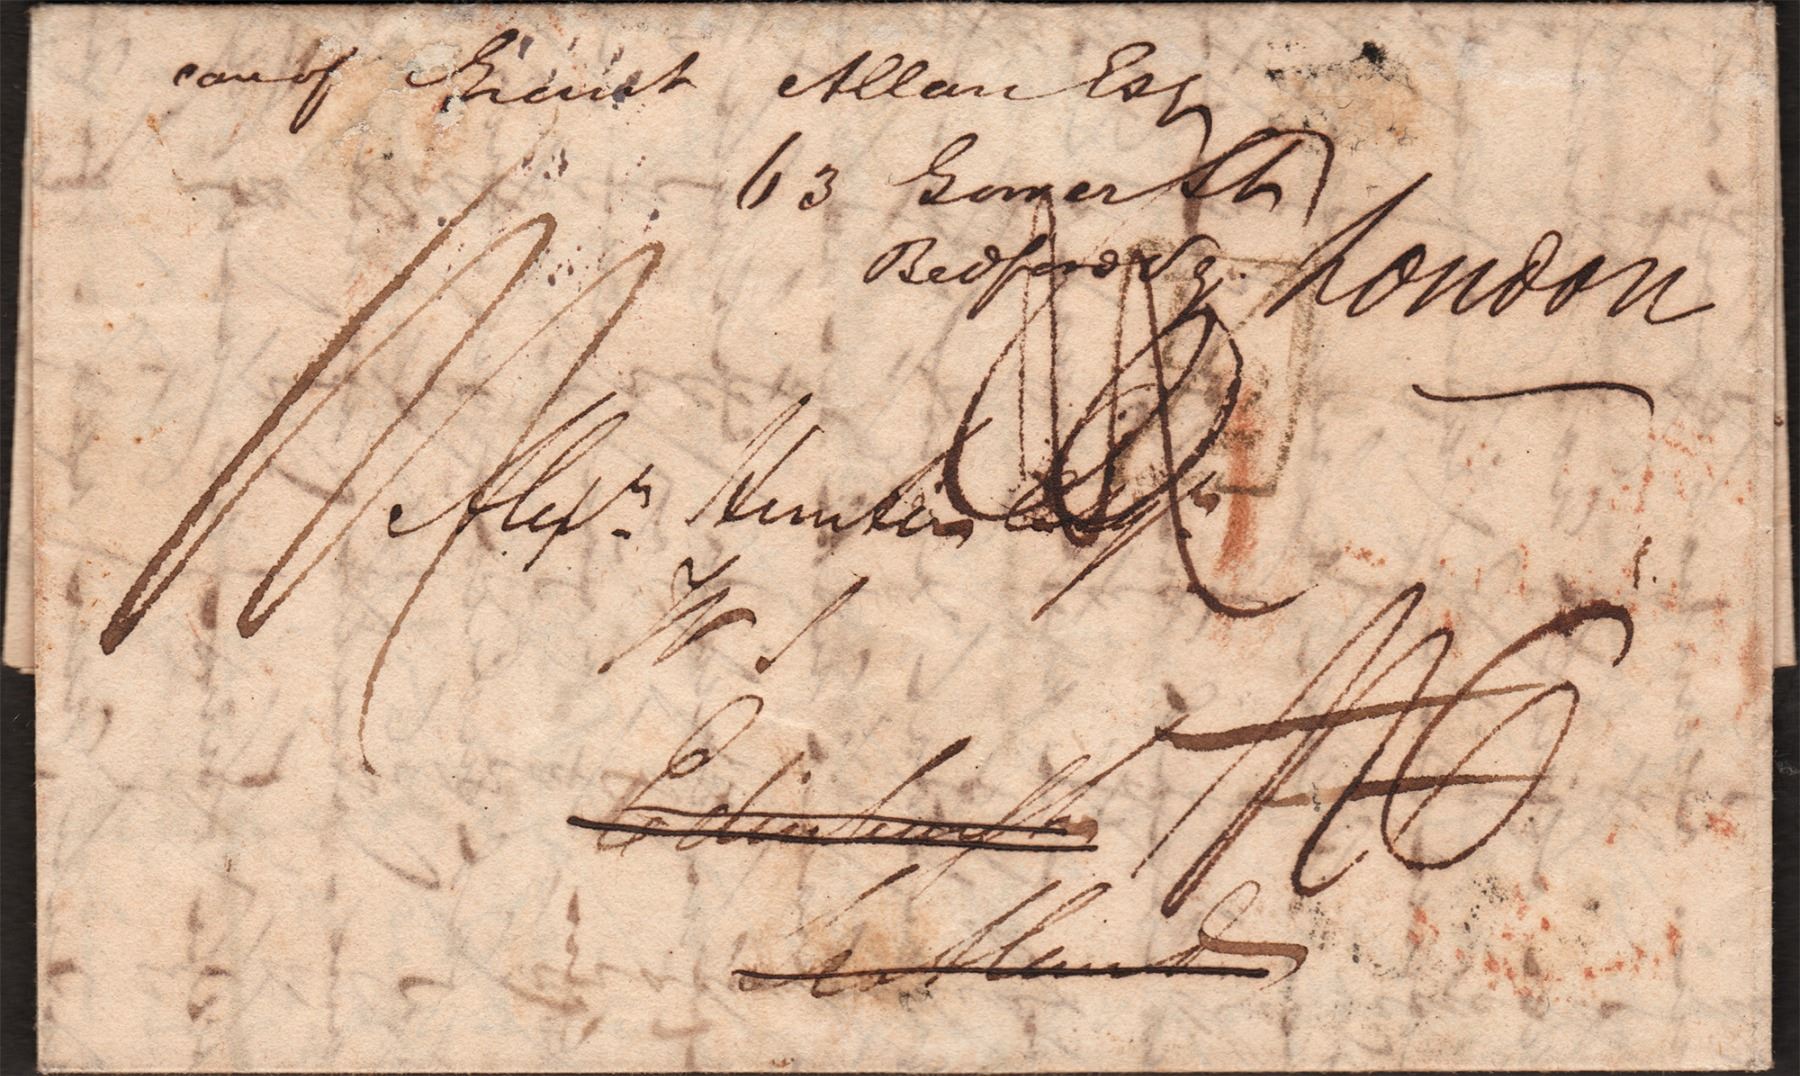 care of Grant Allan Esq
63 Gower St
Bedford Sq. London
Alexr. Hunter Esqr
W S
Edinburgh
Scotland